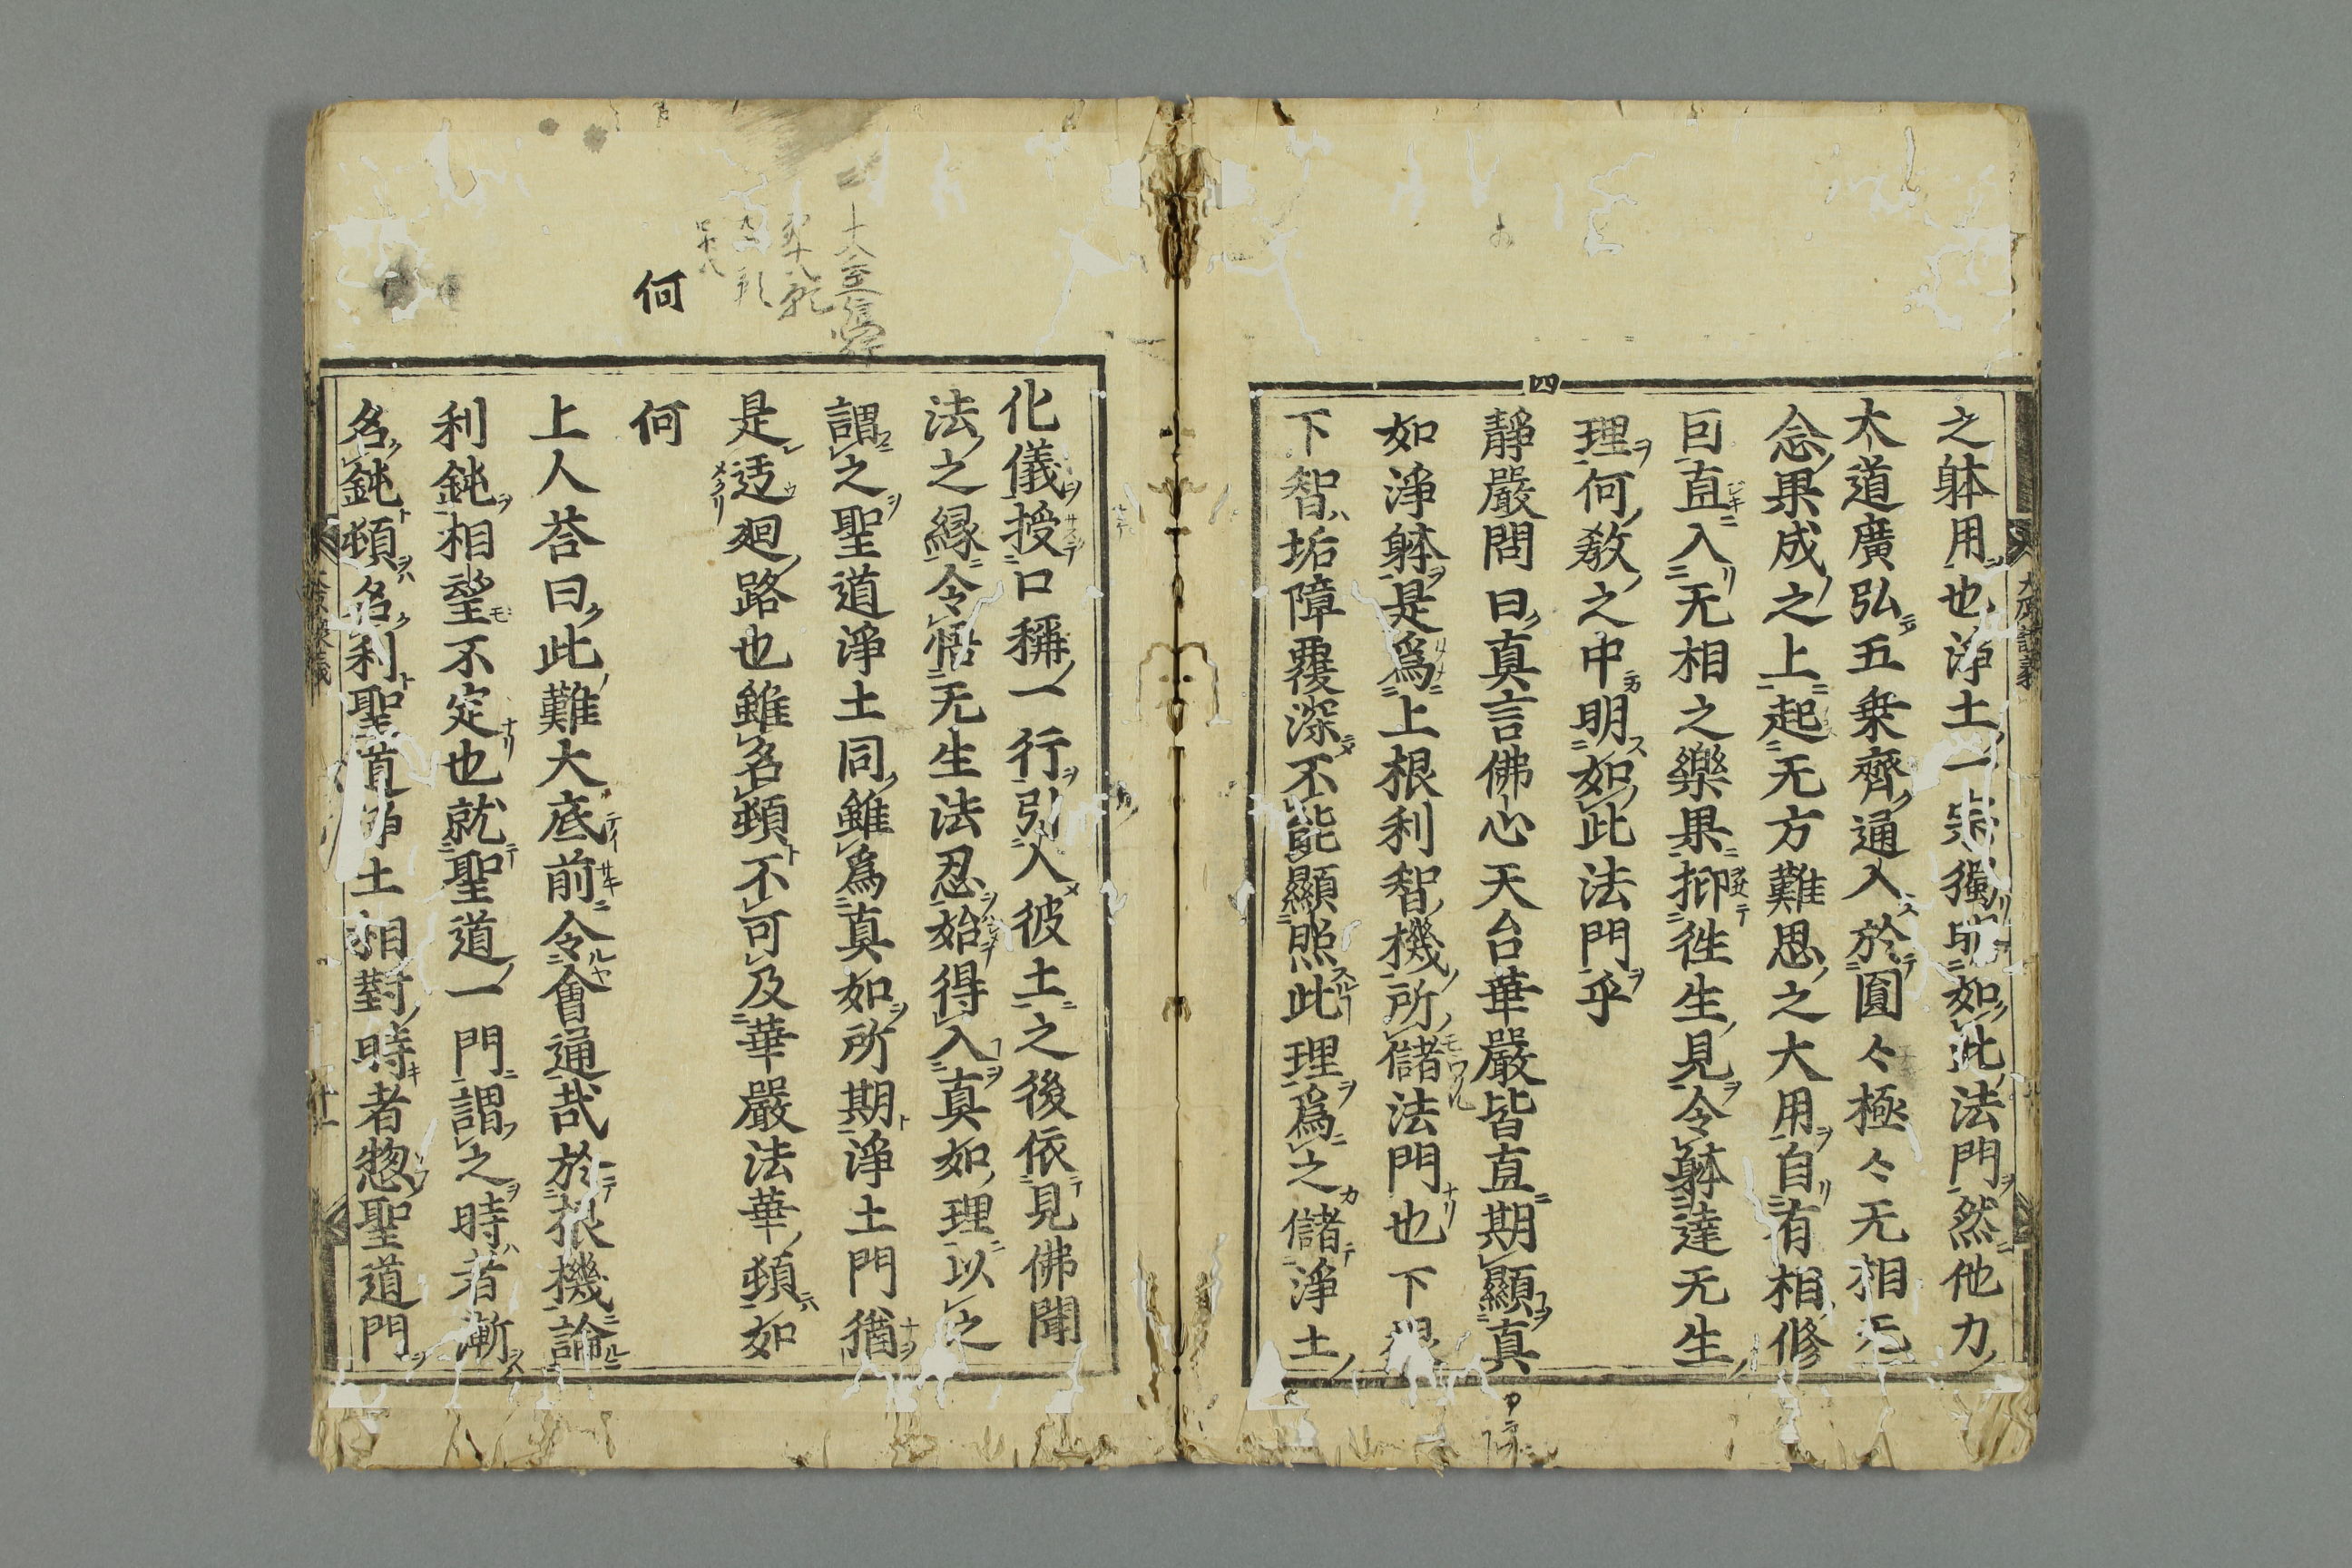 之躰用也淨土一宗獨明如此法門然他力
大道廣弘五乗齊通入於圓々極々无相无
念果成之上起无方難思之大用自有相修
因直入无相之樂果抑徃生見令躰達无生
理何教之中明如此法門乎
四
靜嚴問曰真言佛心天台華嚴皆直期顯真
如淨躰是爲上根利智機所儲法門也下根
下智垢障覆深不能顯照此理爲之儲淨土
化儀授口稱一行引入彼土之後依見佛聞
法之縁令悟无生法忍始得入真如理以之
謂之聖道淨土同雖爲真如所期淨土門猶
是迃廻路也雖名頓不可及華嚴法華頓如
何
何
上人荅曰此難大底前令會通㢤於根機論
利鈍相望不定也就聖道一門謂之時者漸
名鈍頓名利聖道淨土相對時者惣聖道門